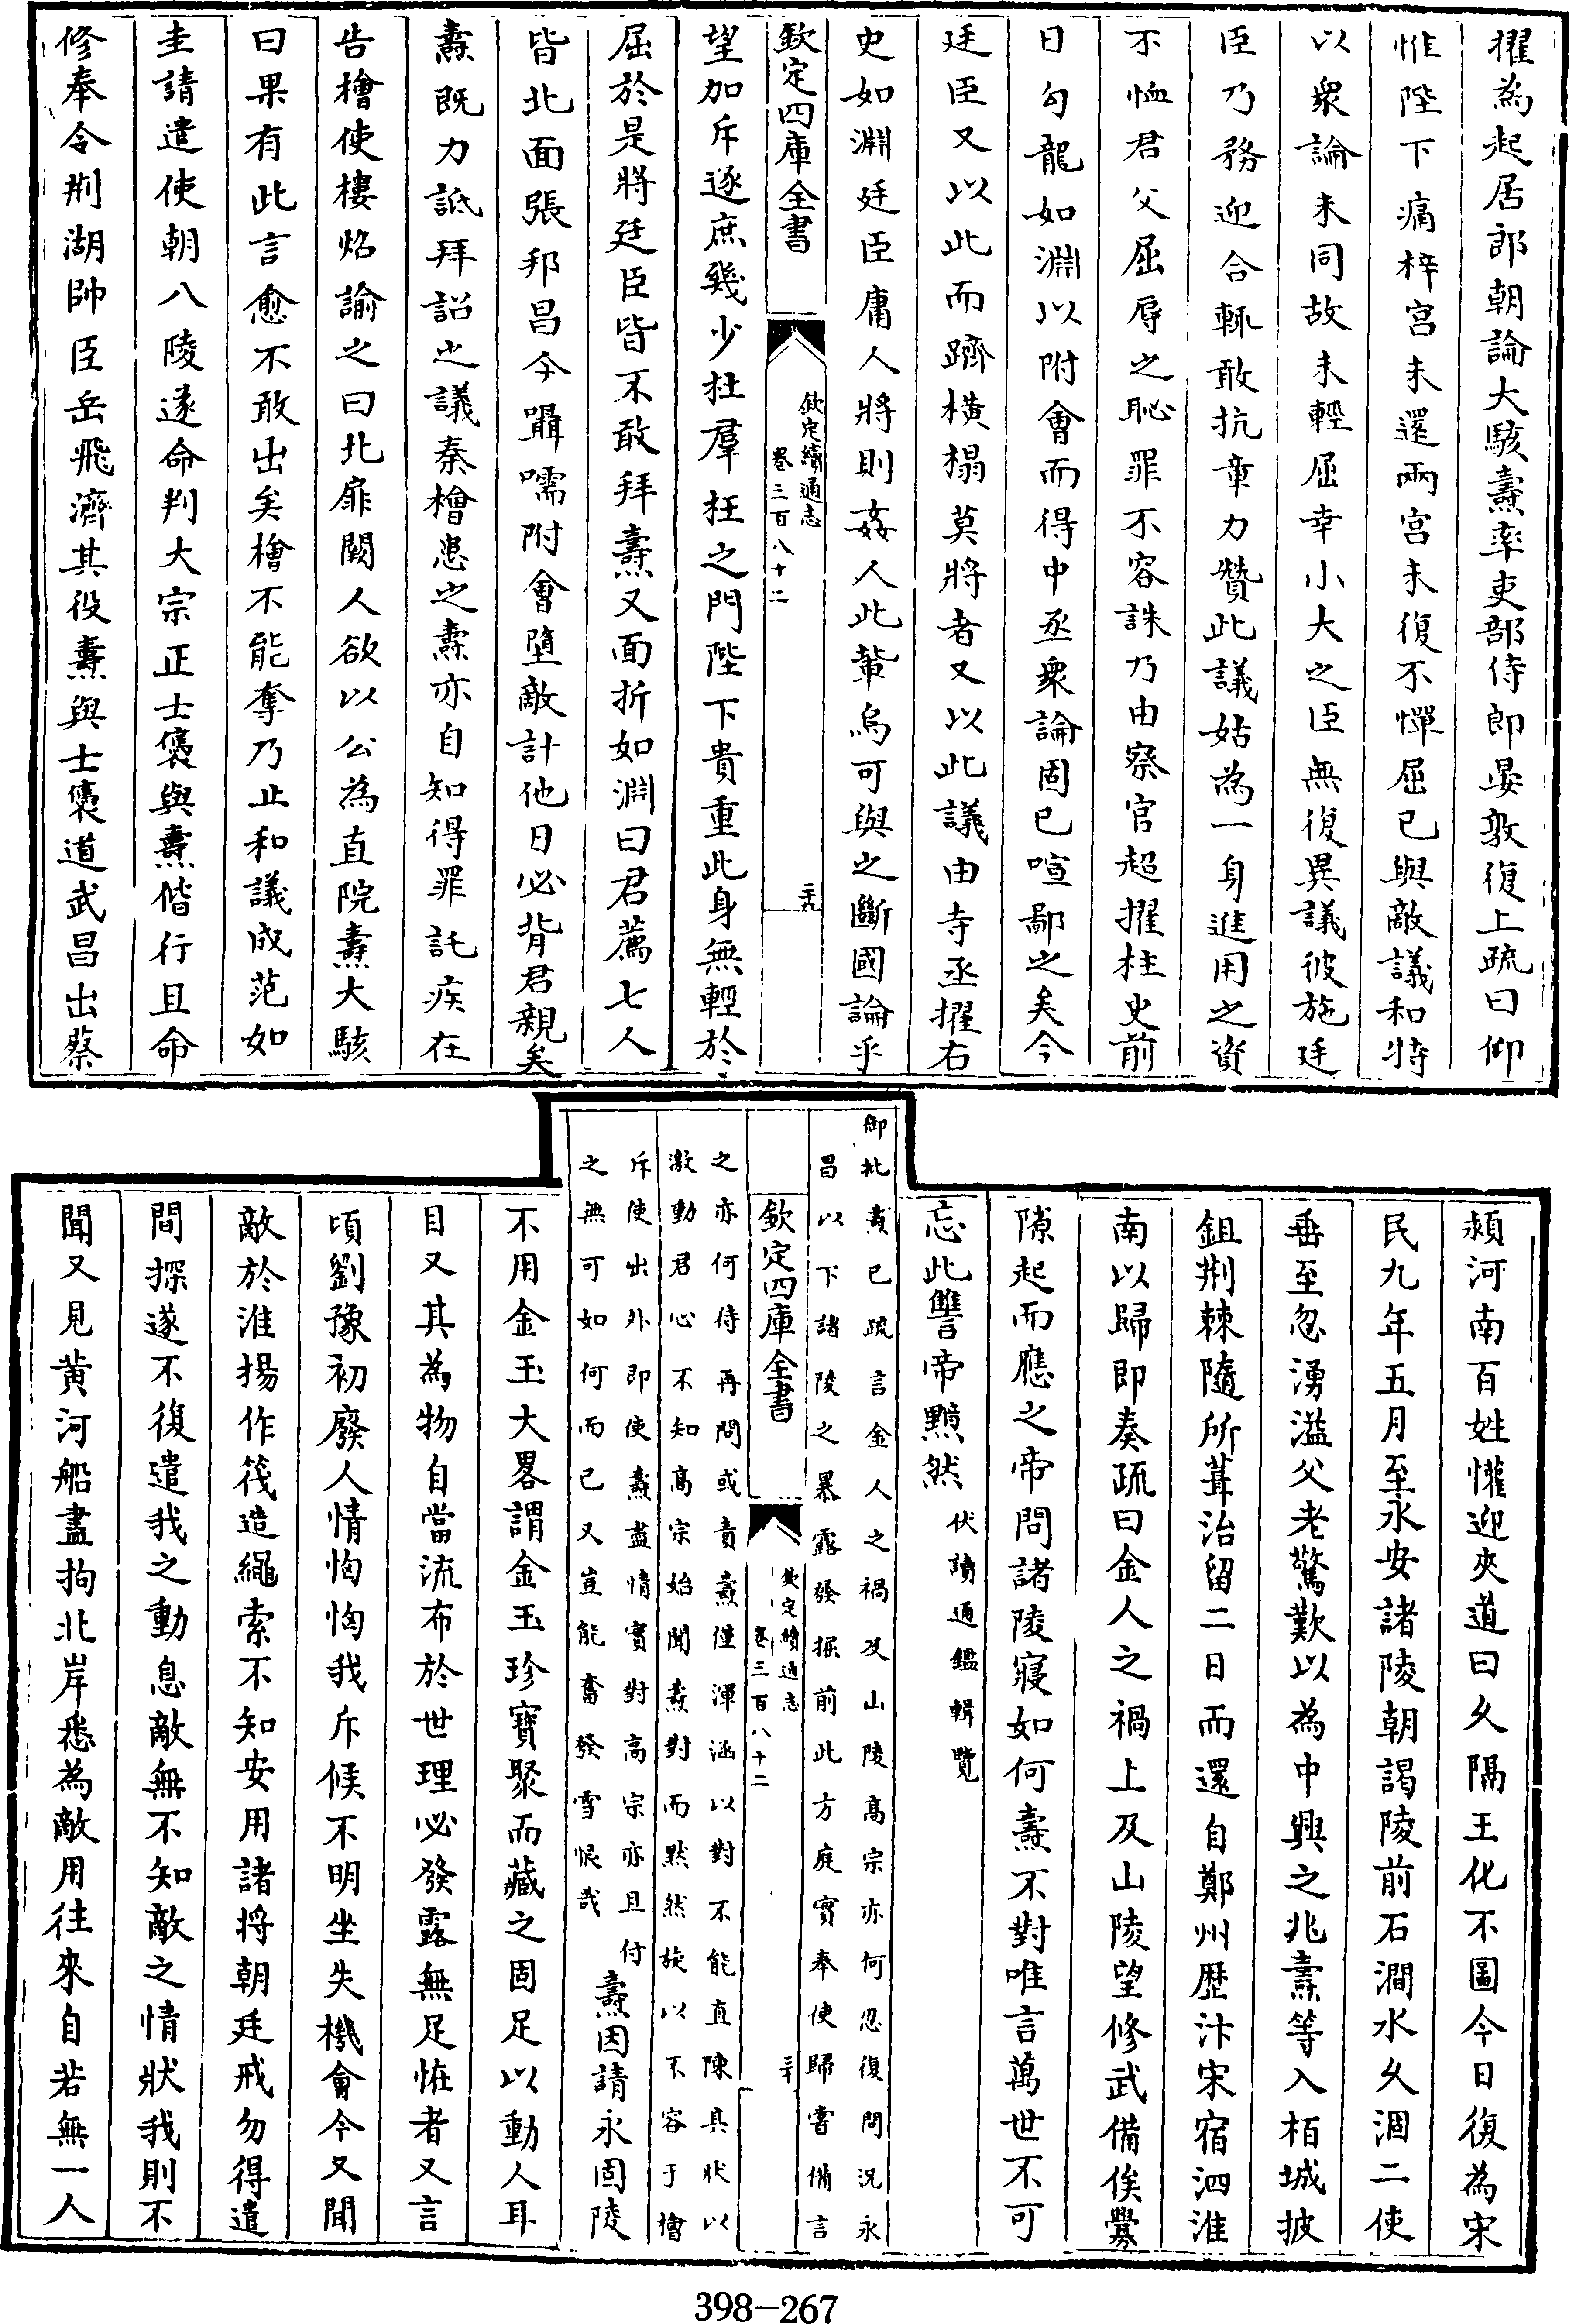 擢為起居郎朝論大駭燾率吏部侍郎晏敦復上疏曰仰
惟陛下痛梓宮未還兩宮未復不憚屈已與敵議和特
以衆論未同故未輕屈幸小大之臣無復異議彼施廷
臣乃務迎合輒敢抗章力贊此議姑為一身進用之資
不恤君父屈辱之恥罪不容誅乃由察官超擢柱史前
日勾龍如淵以附會而得中丞衆論固已喧鄙之矣今
廷臣又以此而躋橫榻莫將者又以此議由寺丞擢右
史如淵廷臣庸人將則姦人此輩烏可與之斷國論乎
欽定四庫全書
欽定續通志
卷三百八十二
二十九
望加斥逐庶幾少杜羣枉之門陛下貴重此身無輕於
屈於是將廷臣皆不敢拜燾又面折如淵曰君薦七人
皆北面張邦昌今囁嚅附會墮敵計他日必背君親矣
燾既力詆拜詔之議秦檜患之燾亦自知得罪託疾在
告檜使樓炤諭之曰北扉闕人欲以公為直院燾大駭
曰果有此言愈不敢出矣檜不能奪乃止和議成范如
圭請遣使朝八陵遂命判大宗正士㒟與燾偕行且命
修奉令荆湖帥臣岳飛濟其役燾與士㒟道武昌出蔡
潁河南百姓懽迎夾道曰久隔王化不圖今日復為宋
民九年五月至永安諸陵朝謁陵前石澗水久涸二使
垂至忽湧溢父老驚歎以為中興之兆燾等入栢城披
鉏荆棘隨所葺治留二日而還自鄭州歷汴宋宿泗淮
南以歸即奏疏曰金人之禍上及山陵望修武備俟釁
隙起而應之帝問諸陵寢如何燾不對唯言萬世不可
忘此讐帝黯然伏讀通鑑輯覽
御批燾已疏言金人之禍及山陵高宗亦何忍復問況永
昌以下諸陵之暴露發掘前此方庭實奉使歸嘗備言
欽定四庫全書
欽定續通志
卷三百八十二
三十
之亦何待再問或責燾僅渾涵以對不能直陳具狀以
激動君心不知高宗始聞燾對而黙然旋以不容于檜
斥使出外即使燾盡情實對高宗亦且付
之無可如何而已又豈能奮發雪恨哉
燾因請永固陵
不用金玉大畧謂金玉珍寶聚而藏之固足以動人耳
目又其為物自當流布於世理必發露無足恠者又言
頃劉豫初廢人情恟恟我斥候不明坐失機會今又聞
敵於淮揚作筏造繩索不知安用諸将朝廷戒勿得遣
間探遂不復遣我之動息敵無不知敵之情狀我則不
聞又見黄河船盡拘北岸悉為敵用往來自若無一人
398-267